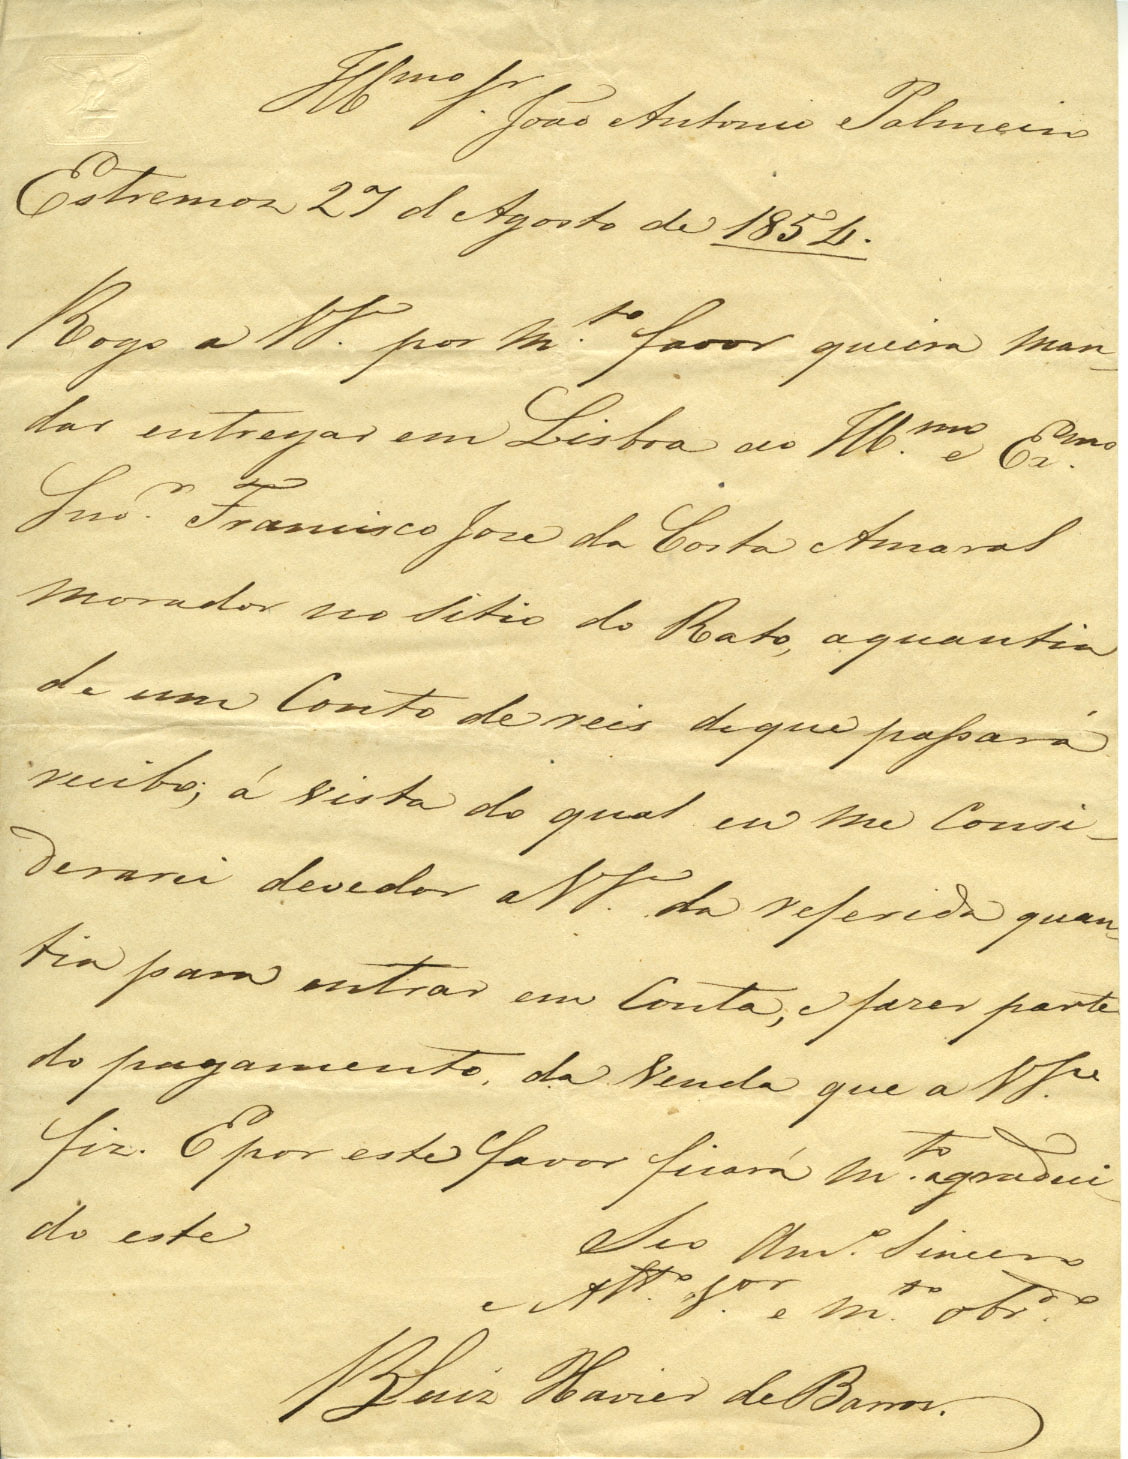 Illmo Sr. João Antonio Palmeiro
Estremoz 27 d Agosto de 1854.
Rogo a VSa. por m.to favor queira man-
dar entregar em Lisboa ao Illmo. e Exmo.
Snr. Francisco Joze da Costa Amaral
morador no sitio do Rato, aquantia
de um Conto de reis deque passará
recibo; á vista do qual eu me Consi-
derarei devedor a VSa. da referida quan-
tia para entrar em Conta, e fazer parte
do pagamento, da venda que a VSa.
fiz. E por este favor ficará m.to agradeci-
do este
Seo Amo. Sincero
e Atto. V.or e m.to obr.do
Luiz Xavier de Barros.